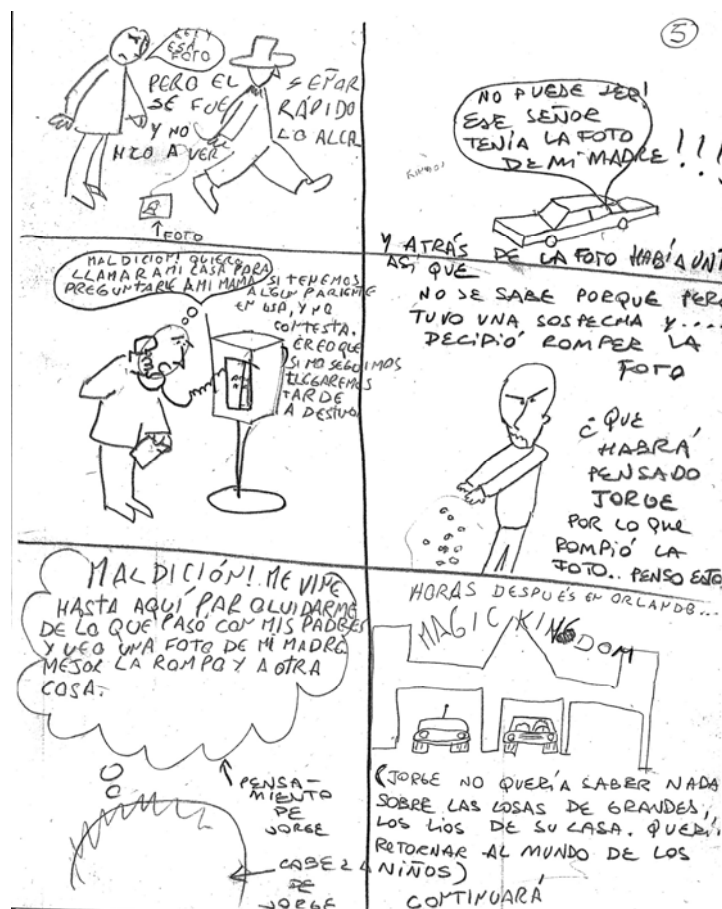 5
ESA
FOTO
PERO EL SEÑOR
SE FUE RÁPIDO
Y NO LO ALCA
NZO A VER
↑FOTO
NO PUEDE SER!
ESE SEÑOR
TENÍA LA FOTO
DE MI MADRE!!!
Y ATRÁS DE LA FOTO HABÍA UN
MALDICIÓN! QUIERO
LLAMAR A MI CASA PARA
PREGUNTARLE A MI MAMA SI TENEMOS
ALGUN PARIENTE
EN USA, Y NO
CONTESTA.
CREO QUE
SI NO SEGUIMOS
LLEGAREMOS
TARDE
A DESTINO
ASÍ QUE
NO SE SABE PORQUE PERO
TUVO UNA SOSPECHA Y....
DECIPIÓ ROMPER LA
FOTO
¿QUE
HABRÁ
PENSADO
JORGE
POR LO QUE
ROMPIÓ LA
FOTO.. PENSO ESTO
MALDICIÓN! ME VINE
HASTA AQUÍ PAR OLUIDARME
DE LO QUE PASÓ CON MIS PADRES
Y VEO UNA FOTO DE MI MADRE
MEJOR LA ROMPO Y A OTRA
COSA.
PENSA-
MIENTO
DE
JORGE
CABEZA
DE
JORGE
HORAS DESPUÉS EN ORLANDO...
MAGIC KINGDOM
(JORGE NO QUERÍA SABER NADA
SOBRE LAS COSAS DE GRANDES,
LOS LÍOS DE SU CASA. QUERÍA
RETORNAR AL MUNDO DE LOS
NIÑOS)
CONTINUARÁ